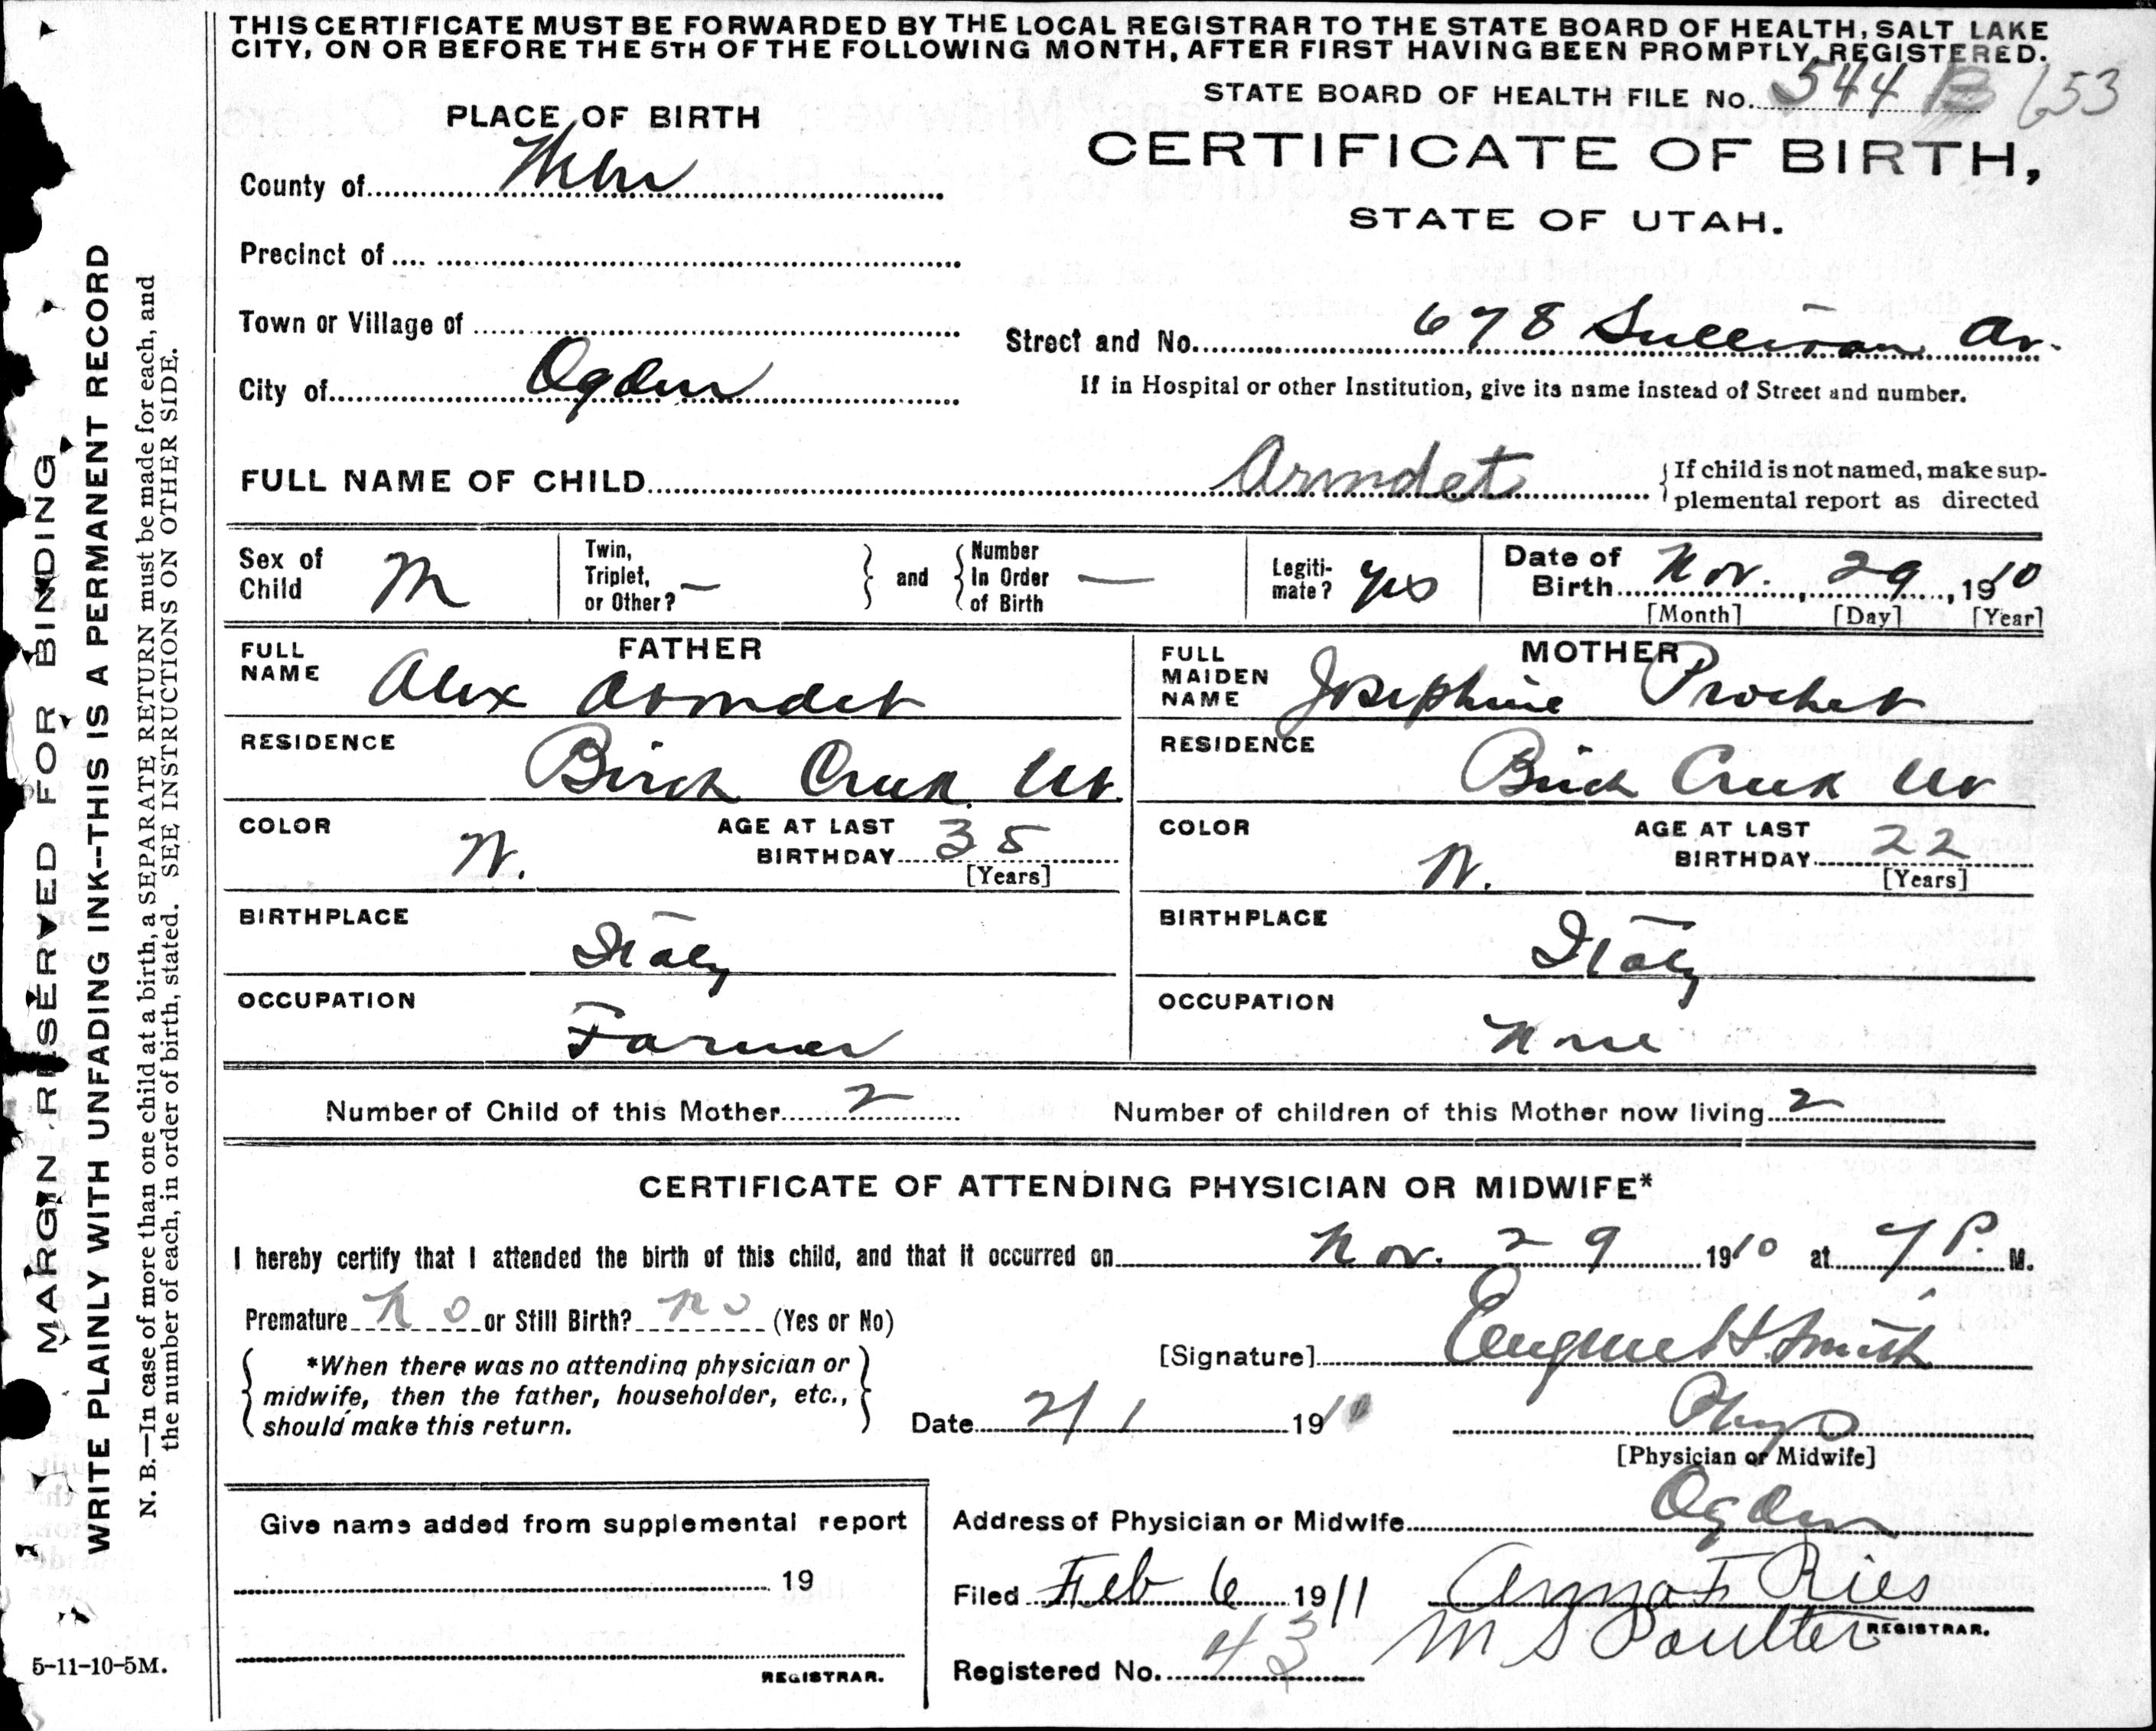 THIS CERTIFICATE MUST BE FORWARDED BY THE LOCAL REGISTRAR TO THE STATE BOARD OF HEALTH, SALT LAKE
CITY, ON OR BEFORE THE 5TH OF THE FOLLOWING MONTH, AFTER FIRST HAVING BEEN PROMPTLY REGISTERED.
STATE BOARD OF HEALTH FILE No. 544 B 653
PLACE OF BIRTH
CERTIFICATE OF BIRTH,
STATE OF UTAH.
County of Weber
Precinct of
Town or Village of
Street and No. 678 Sullivan Av.
City of Ogden
If in Hospital or other Institution, give its name instead of Street and number.
FULL NAME OF CHILD Armdet
If child is not named, make sup-
plemental report as directed
Sex of Child M
Twin, Triplet, or Other? —
and Number In Order of Birth —
Legiti-mate? yes
Date of Birth Nov. 29, 1910
[Month] [Day] [Year]
FATHER
FULL NAME Alex Armdet
RESIDENCE Birch Creek Ut.
COLOR W.
AGE AT LAST BIRTHDAY 35
[Years]
BIRTHPLACE Italy
OCCUPATION Farmer
MOTHER
FULL MAIDEN NAME Josephine Prochet
RESIDENCE Birch Creek Ut
COLOR W.
AGE AT LAST BIRTHDAY 22
[Years]
BIRTHPLACE Italy
OCCUPATION None
Number of Child of this Mother 2
Number of children of this Mother now living 2
CERTIFICATE OF ATTENDING PHYSICIAN OR MIDWIFE*
I hereby certify that I attended the birth of this child, and that it occurred on Nov. 29 1910 at 7 P. M.
Premature No or Still Birth? no (Yes or No)
*When there was no attending physician or
midwife, then the father, householder, etc.,
should make this return.
[Signature] Eugene H. Smith
Date 2/1 191
Phys
[Physician or Midwife]
Give name added from supplemental report
19
REGISTRAR.
Address of Physician or Midwife Ogden
Filed Feb 6 1911 Anna F Ries
M S Poulter REGISTRAR.
Registered No. 43
MARGIN RESERVED FOR BINDING
WRITE PLAINLY WITH UNFADING INK--THIS IS A PERMANENT RECORD
N. B.—In case of more than one child at a birth, a SEPARATE RETURN must be made for each, and
the number of each, in order of birth, stated. SEE INSTRUCTIONS ON OTHER SIDE.
5-11-10-5M.